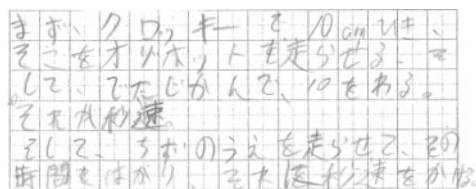 まず、クロッキーを10cmひき、
そこをオリホットを走らせる。そ
して、でたじかんで、10をわる。
それが秒速。
そして、ちずのうえを走らせて、その
時間をはかり、それ秒速をかけ